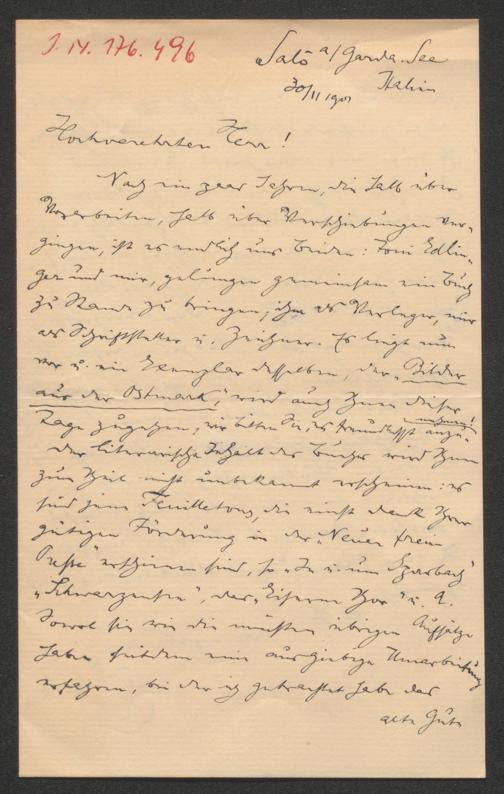 J. N. 176.496
Salò a/Garda-See
Italien
30/11 1901
Hochverehrter Herr!
Nach ein paar Jahren, die halb über
Vorarbeiten, halb über Verschiebungen ver-
gingen, ist es endlich uns Beiden: Toni Edlin-
ger und mir, gelungen gemeinsam ein Buch
zu Stande zu bringen, ihm als Verleger, mir
als Schriftsteller u. Zeichner. Es liegt nun
vor u. ein Exemplar desselben, der „Bilder
aus der Ostmark", wird auch Ihnen dieser
Tage zugehen, wir bitten Sie, es freundlichst anzu-
nehmen!
Der literarische Inhalt des Buches wird Ihnen
zum Theil nicht unbekannt erscheinen: es
sind jene Feuilletons, die einst dank Ihrer
gütigen Förderung in der „Neuen freien
Presse" erschienen sind, so „In u. um Sparbach"
„Schwarzensee", das „Eiserne Thor" u. A.
Sowol sie wie die meisten übrigen Aufsätze
haben seitdem eine ausgiebige Umarbeitung
erfahren, bei der ich getrachtet habe das
alte Gute